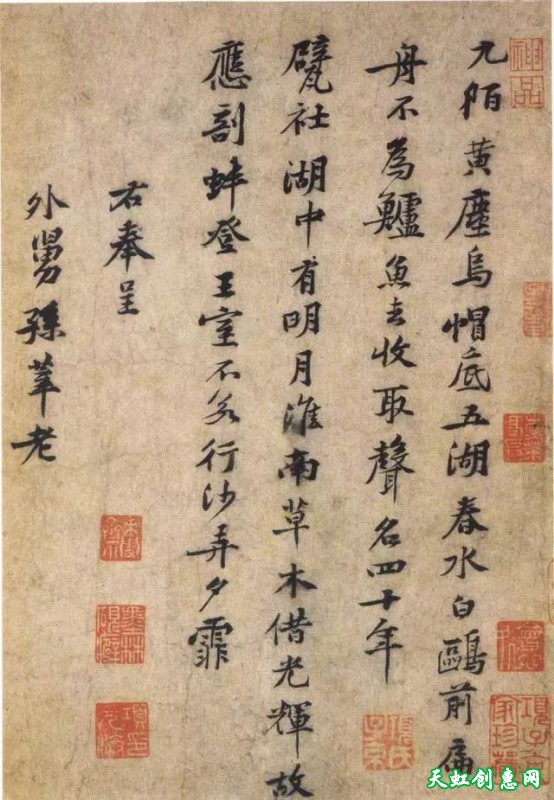 神品
九陌黃塵烏帽底五湖春水白鷗前扁
舟不為鱸魚去收取聲名四十年
甓社湖中有明月淮南草木借光輝故
應剖蚌登王室不若行沙弄夕霏
右奉呈
外舅孫莘老
項子京家珍藏
天虹创惠网